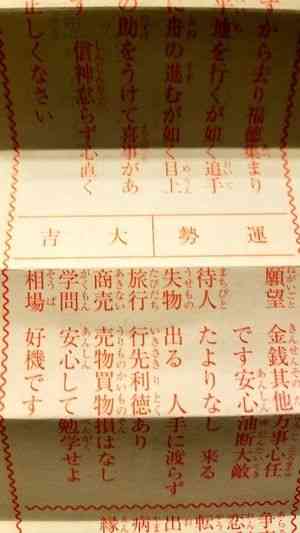 ずから去り福徳集まり
平地を行くが如く追手
に舟の進むが如く目上
の助をうけて喜事があ
す 信神怠らず心直く
正しくなさい
運勢 大吉
願望 金銭其他万事心任
です安心油断大敵
待人 たよりなし 来る
失物 出る 人手に渡らず
旅行 行先利徳あり
商売 売物買物損はなし
学問 安心して勉学せよ
相場 好機です
争
恋
転
出
病
縁